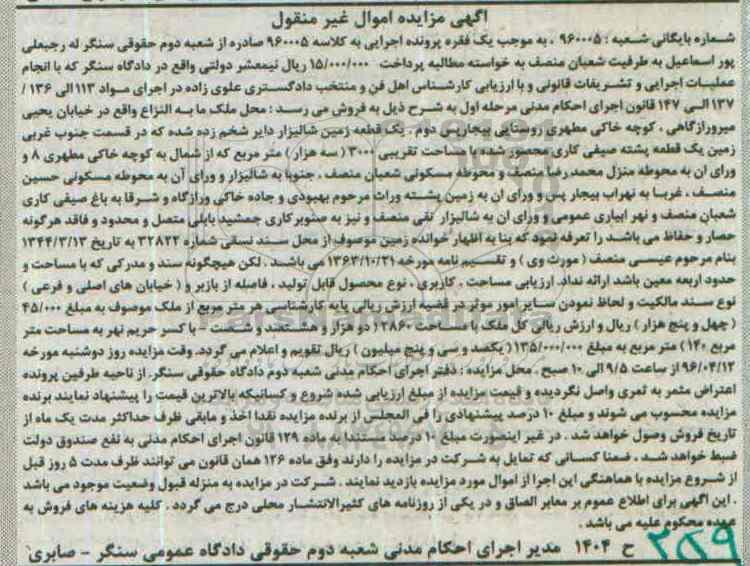 آگهی مزایده اموال غیر منقول
شماره بایگانی شعبه : ۹۶۰۰۰۵ ، به موجب یک فقره پرونده اجرایی به کلاسه ۹۶۰۰۰۵ صادره از شعبه دوم حقوقی سنگر له رجبعلی
پور اسماعیل به طرفیت شعبان منصف به خواسته مطالبه پرداخت ۱۵/۰۰۰/۰۰۰ ریال نیمعشر دولتی واقع در دادگاه سنگر که با انجام
عملیات اجرایی و تشریفات قانونی و با ارزیابی کارشناس اهل فن و منتخب دادگستری علوی زاده در اجرای مواد ۱۱۳ الی ۱۳۶ /
۱۳۷ الی ۱۴۷ قانون اجرای احکام مدنی مرحله اول به شرح ذیل به فروش می رسد : محل ملک ما به النزاع واقع در خیابان یحیی
میرورازگاهی ، کوچه خاکی مطهری روستایی بیجارپس دوم . یک قطعه زمین شالیزار دایر شخم زده شده که در قسمت جنوب غربی
زمین یک قطعه پشته صیفی کاری محصور شده با مساحت تقریبی ۳۰۰۰ ( سه هزار ) متر مربع که از شمال به کوچه خاکی مطهری ۸ و
ورای آن به محوطه منزل محمد رضا منصف و محوطه مسکونی شعبان منصف ، جنوبا به شالیزار و ورای آن به محوطه مسکونی حسین
منصف ، غربا به نهراب بیجار پس و ورای ان به زمین پشته وراث مرحوم بهبودی و جاده خاکی ورازگاه و شرقا به باغ صیفی کاری
شعبان منصف و نهر ابیاری عمومی و ورای ان به شالیزار تقی منصف و نیز به صنوبرکاری جمشید بابلی متصل و محدود و فاقد هرگونه
حصار و حفاظ می باشد را تعرفه نمود که بنا به اظهار خوانده زمین موصوف از محل سند نسقی شماره ۳۲۸۲۲ به تاریخ ۱۳۴۴/۳/۱۳
بنام مرحوم عیسی منصف ( مورث وی ) و تقسیم نامه مورخه ۱۳۶۳/۱۰/۲۱ می باشد . لکن هیچگونه سند و مدرکی که با مساحت و
حدود اربعه معین باشد ارائه نداد. ارزیابی مساحت ، کاربری ، نوع محصول قابل تولید ، فاصله از بازبر و ( خیابان های اصلی و فرعی )
نوع سند مالکیت و لحاظ نمودن سایر امور موثر در قضیه ارزش ریالی پایه کارشناسی هر متر مربع از ملک موصوف به مبلغ ۴۵/۰۰۰
( چهل و پنج هزار ) ریال و ارزش ریالی کل ملک با مساحت ۲۸۶۰ ( دو هزار و هشتصد و شصت - با کسر حریم نهر به مساحت متر
مربع ۱۴۰ ) متر مربع به مبلغ ۱۳۵/۰۰۰/۰۰۰ ( یکصد و سی و پنج میلیون ) ریال تقویم و اعلام می گردد. وقت مزایده روز دوشنبه مورخه
۹۶/۰۴/۱۲ از ساعت ۹/۵ الی ۱۰ صبح . محل مزایده : دفتر اجرای احکام مدنی شعبه دوم دادگاه حقوقی سنگر. از ناحیه طرفین پرونده
اعتراض مثمر به ثمری واصل نگردیده و قیمت مزایده از مبلغ ارزیابی شده شروع و کسانیکه بالاترین قیمت را پیشنهاد نمایند برنده
مزایده محسوب می شوند و مبلغ ۱۰ درصد پیشنهادی را فی المجلس از برنده مزایده نقدا اخذ و مابقی ظرف حداکثر مدت یک ماه از
تاریخ فروش وصول خواهد شد . در غیر اینصورت مبلغ ۱۰ درصد مستند به ماده ۱۲۹ قانون اجرای احکام مدنی به نفع صندوق دولت
ضبط خواهد شد . ضمنا کسانی که تمایل به شرکت در مزایده را دارند وفق ماده ۱۲۶ همان قانون می توانند ظرف مدت ۵ روز قبل
از شروع مزایده با هماهنگی این اجرا از اموال مورد مزایده بازدید نمایند . شرکت در مزایده به منزله قبول وضعیت موجود می باشد
. این آگهی برای اطلاع عموم بر معابر الصاق و در یکی از روزنامه های کثیرالانتشار محلی درج می گردد . کلیه هزینه های فروش به
عهده محکوم علیه می باشد .
ح ۱۴۰۴ مدیر اجرای احکام مدنی شعبه دوم حقوقی دادگاه عمومی سنگر - صابری
۲۵۹